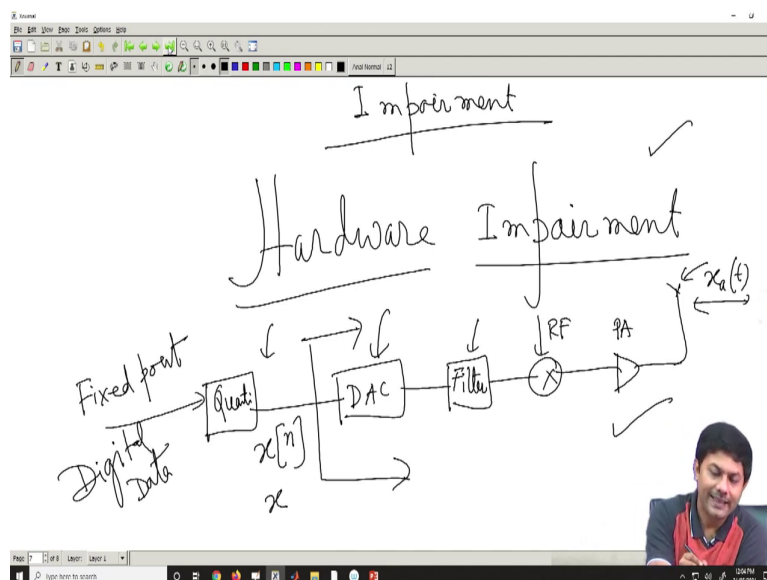 Xournal
File Edit View Page Tools Options Help
Arial Normal 12
Impairment
Hardware Impairment
Fixed point
Digital Data
Quanti
x[n]
x
DAC
Filter
RF
X
PA
xₐ(t)
Page 7 of 8 Layer: Layer 1
Type here to search
12:04 PM